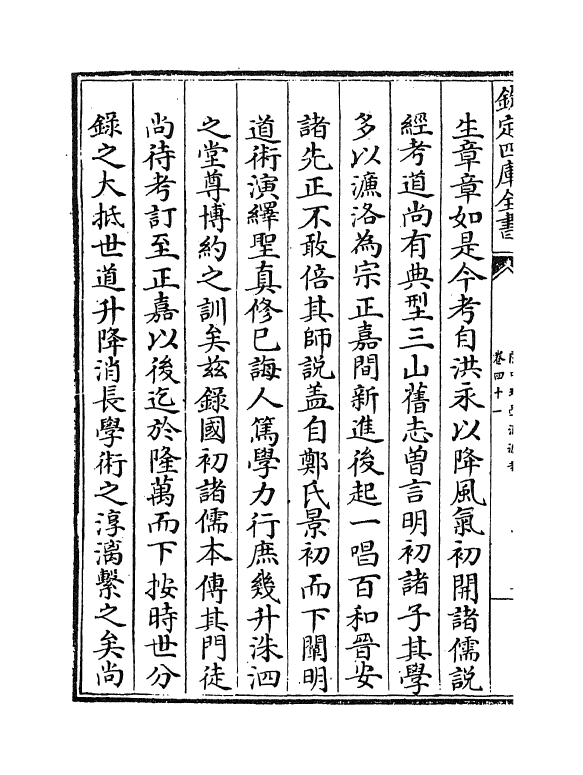 欽定四庫全書
卷四十一
生章章如是今考自洪永以降風氣初開諸儒説
經考道尚有典型三山舊志曽言明初諸子其學
多以濂洛為宗正嘉間新進後起一唱百和晉安
諸先正不敢倍其師説盖自鄭氏景初而下闡明
道術演繹聖真修已誨人篤學力行庶幾升洙泗
之堂尊博約之訓矣兹録國初諸儒本傳其門徒
尚待考訂至正嘉以後迄於隆萬而下按時世分
録之大抵世道升降消長學術之淳漓繫之矣尚